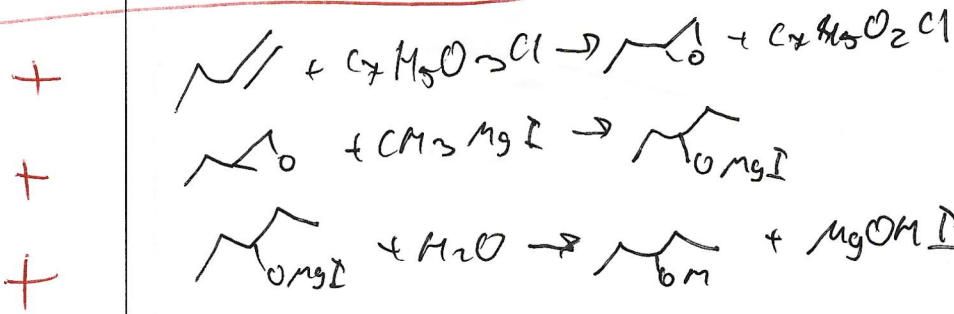 + + C₇H₅O₃Cl → O + C₇H₅O₂Cl
+ O + CH₃MgI → OMgI
+ OMgI + H₂O → OH + MgOHI